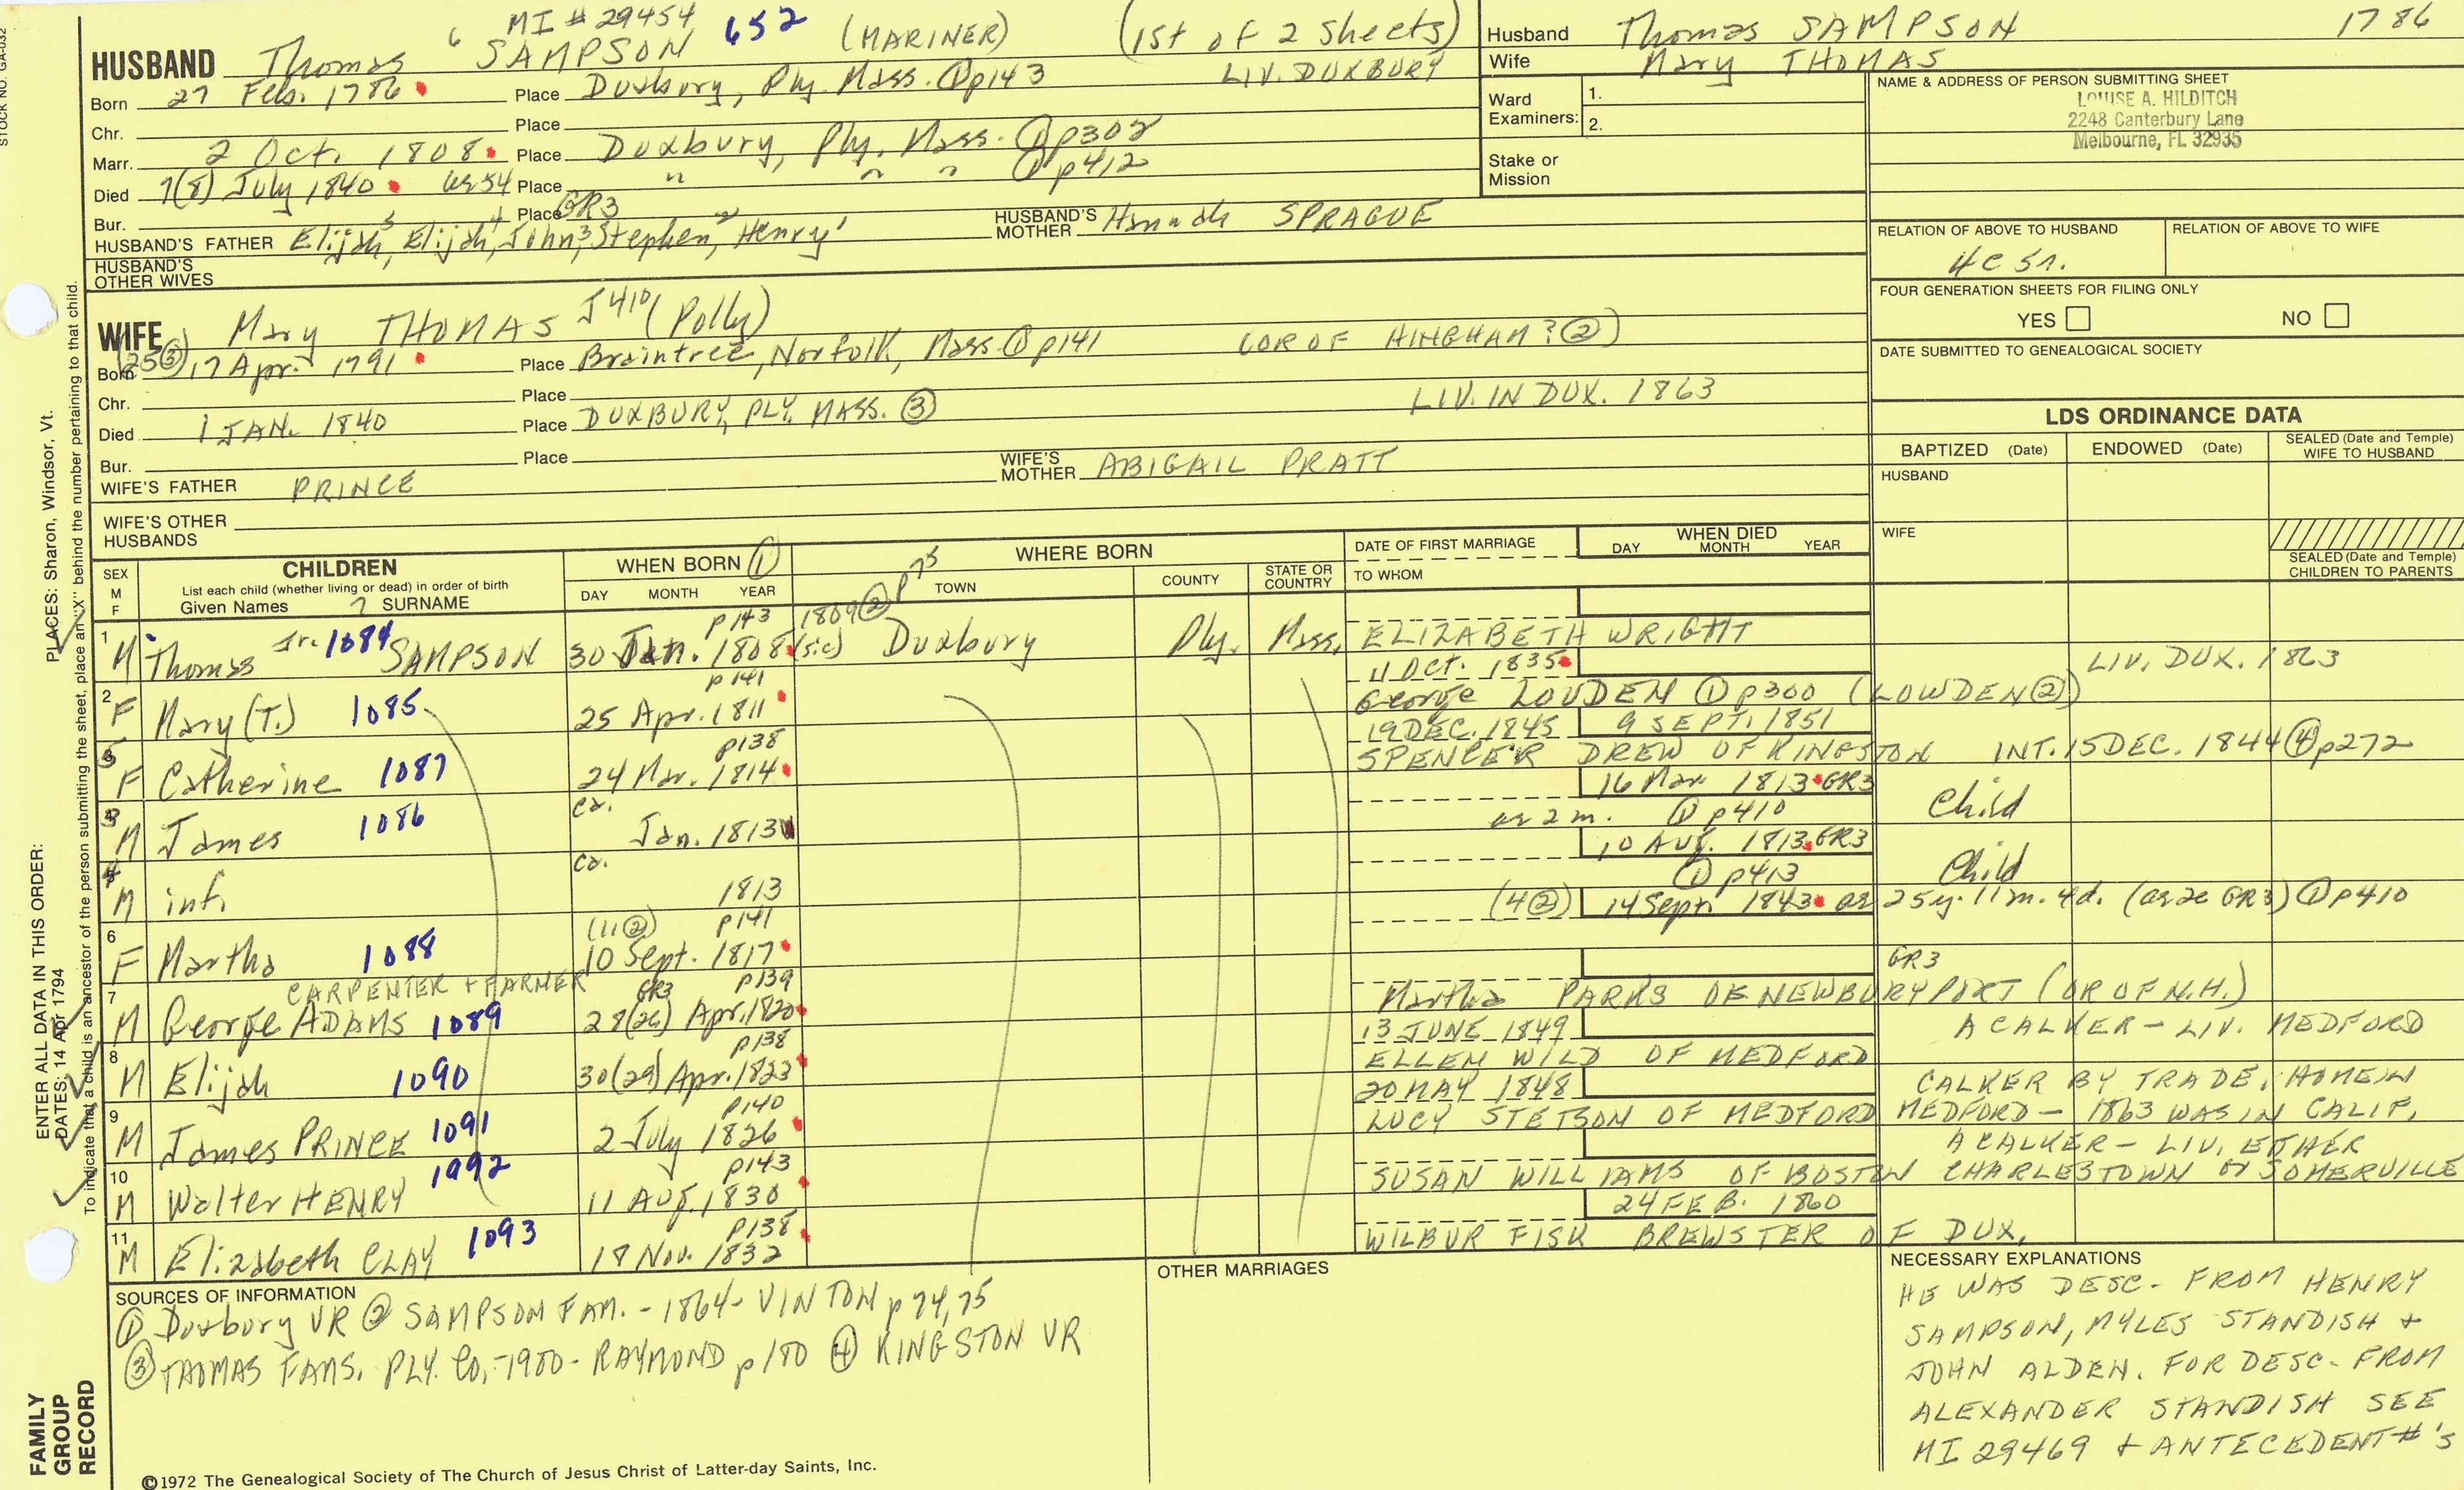 MI # 29454 652 (MARINER) (1st of 2 Sheets)
HUSBAND Thomas 6 SAMPSON
Born 27 Feb. 1786 Place Duxbury, Ply. Mass. ① p143 LIV. DUXBURY
Chr. Place
Marr. 2 Oct. 1808 Place Duxbury, Ply. Mass. ① p308
Died 7(8) July 1840 ae 54 Place " " " ① p412
Bur. Place GR3
HUSBAND'S FATHER Elijah5, Elijah4, John3, Stephen2, Henry1 HUSBAND'S MOTHER Hannah SPRAGUE
HUSBAND'S OTHER WIVES
WIFE Mary THOMAS J410 (Polly)
Born (25③) 17 Apr. 1791 Place Braintree, Norfolk, Mass. ① p141 (OR OF HINGHAM? ②)
Chr. Place LIV. IN DUX. 1863
Died 1 JAN. 1840 Place DUXBURY, PLY. MASS. ③
Bur. Place
WIFE'S FATHER PRINCE WIFE'S MOTHER ABIGAIL PRATT
WIFE'S OTHER HUSBANDS
Husband Thomas SAMPSON 1786
Wife Mary THOMAS
Ward Examiners: 1. 2.
Stake or Mission
NAME & ADDRESS OF PERSON SUBMITTING SHEET
LOUISE A. HILDITCH
2248 Canterbury Lane
Melbourne, FL 32935
RELATION OF ABOVE TO HUSBAND RELATION OF ABOVE TO WIFE
4C 5r.
FOUR GENERATION SHEETS FOR FILING ONLY
YES NO
DATE SUBMITTED TO GENEALOGICAL SOCIETY
LDS ORDINANCE DATA
BAPTIZED (Date) ENDOWED (Date) SEALED (Date and Temple) WIFE TO HUSBAND
HUSBAND
WIFE
SEALED (Date and Temple) CHILDREN TO PARENTS
SEX M F
CHILDREN
List each child (whether living or dead) in order of birth
Given Names 7 SURNAME
WHEN BORN ①
DAY MONTH YEAR
WHERE BORN
TOWN COUNTY STATE OR COUNTRY
DATE OF FIRST MARRIAGE
TO WHOM
WHEN DIED
DAY MONTH YEAR
p143 1809 ② p75
1 M Thomas Jr. 1084 SAMPSON 30 Jan. 1808 (sic) Duxbury Ply. Mass. ELIZABETH WRIGHT
p141 11 Oct. 1835 LIV. DUX. 1863
2 F Mary (T.) 1085 25 Apr. 1811 George LOUDEN ① p300 (LOWDEN ②)
p138 19 DEC. 1845 9 SEPT. 1851
5 F Catherine 1087 24 Mar. 1814 SPENCER DREW OF KINGSTON INT. 15 DEC. 1844 ④ p272
ca. 16 Mar 1813 GR3
3 M James 1086 Jan. 1813 ae 2 m. ① p410 Child
ca. 10 AUG. 1813 GR3
4 M inf. 1813 ① p413 Child
(11②) p141 (4②) 14 Sept. 1843 ae 25y. 11m. 4d. (ae 26 GR3) ① p410
6 F Martha 1088 10 Sept. 1817
CARPENTER + FARMER GR3 p139 GR3
7 M George ADAMS 1089 28(26) Apr. 1820 Martha PARKS OF NEWBURYPORT (OR OF N.H.)
p138 13 JUNE 1849 A CALKER - LIV. MEDFORD
8 M Elijah 1090 30(29) Apr. 1823 ELLEN WILD OF MEDFORD
p140 20 MAY 1848 CALKER BY TRADE, HOME IN
9 M James PRINCE 1091 2 July 1826 LUCY STETSON OF MEDFORD MEDFORD - 1863 WAS IN CALIF.
p143 A CALKER - LIV. EITHER
10 M Walter HENRY 1992 11 AUG. 1830 SUSAN WILLIAMS OF BOSTON CHARLESTOWN or SOMERVILLE
p138 24 FEB. 1860
11 M Elizabeth CLAY 1093 18 Nov. 1832 WILBUR FISK BREWSTER OF DUX.
SOURCES OF INFORMATION
① Duxbury VR ② SAMPSON FAM. - 1864 - VINTON p 74, 75
③ THOMAS FAMS. PLY. CO. - 1980 - RAYMOND p 180 ④ KINGSTON VR
OTHER MARRIAGES
NECESSARY EXPLANATIONS
HE WAS DESC. FROM HENRY
SAMPSON, MYLES STANDISH +
JOHN ALDEN. FOR DESC. FROM
ALEXANDER STANDISH SEE
MI 29469 + ANTECEDENT #'S
©1972 The Genealogical Society of The Church of Jesus Christ of Latter-day Saints, Inc.
STOCK NO. GA-032
ENTER ALL DATA IN THIS ORDER:
PLACES: Sharon, Windsor, Vt.
DATES: 14 Apr 1794
To indicate that a child is an ancestor of the person submitting the sheet, place an "X" behind the number pertaining to that child.
FAMILY
GROUP
RECORD